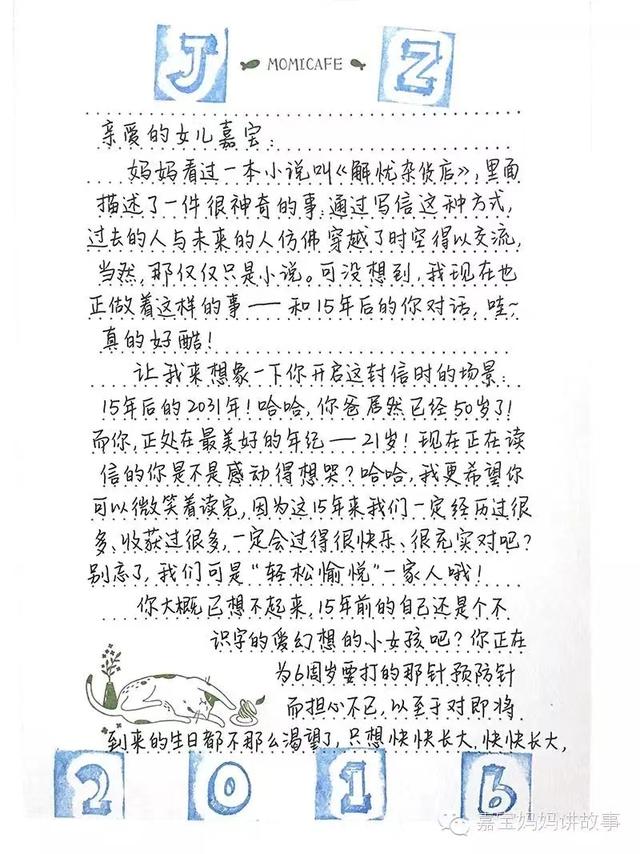 J Z
MOMICAFE
亲爱的女儿嘉宝:
妈妈看过一本小说叫《解忧杂货店》,里面
描述了一件很神奇的事:通过写信这种方式,
过去的人与未来的人仿佛穿越了时空得以交流,
当然,那仅仅只是小说。可没想到,我现在也
正做着这样的事——和15年后的你对话,哇~
真的好酷!
让我来想象一下你开启这封信时的场景:
15年后的2031年!哈哈,你爸居然已经50岁了!
而你,正处在最美好的年纪——21岁!现在正在读
信的你是不是感动得想哭?哈哈,我更希望你
可以微笑着读完,因为这15年来我们一定经历过很
多、收获过很多,一定会过得很快乐、很充实对吧?
别忘了,我们可是“轻松愉悦”一家人哦!
你大概已想不起来,15年前的自己还是个不
识字的爱幻想的小女孩吧?你正在
为6周岁要打的那针预防针
而担心不已,以至于对即将
到来的生日都不那么渴望了,只想快快长大,快快长大,
2016
嘉宝妈妈讲故事